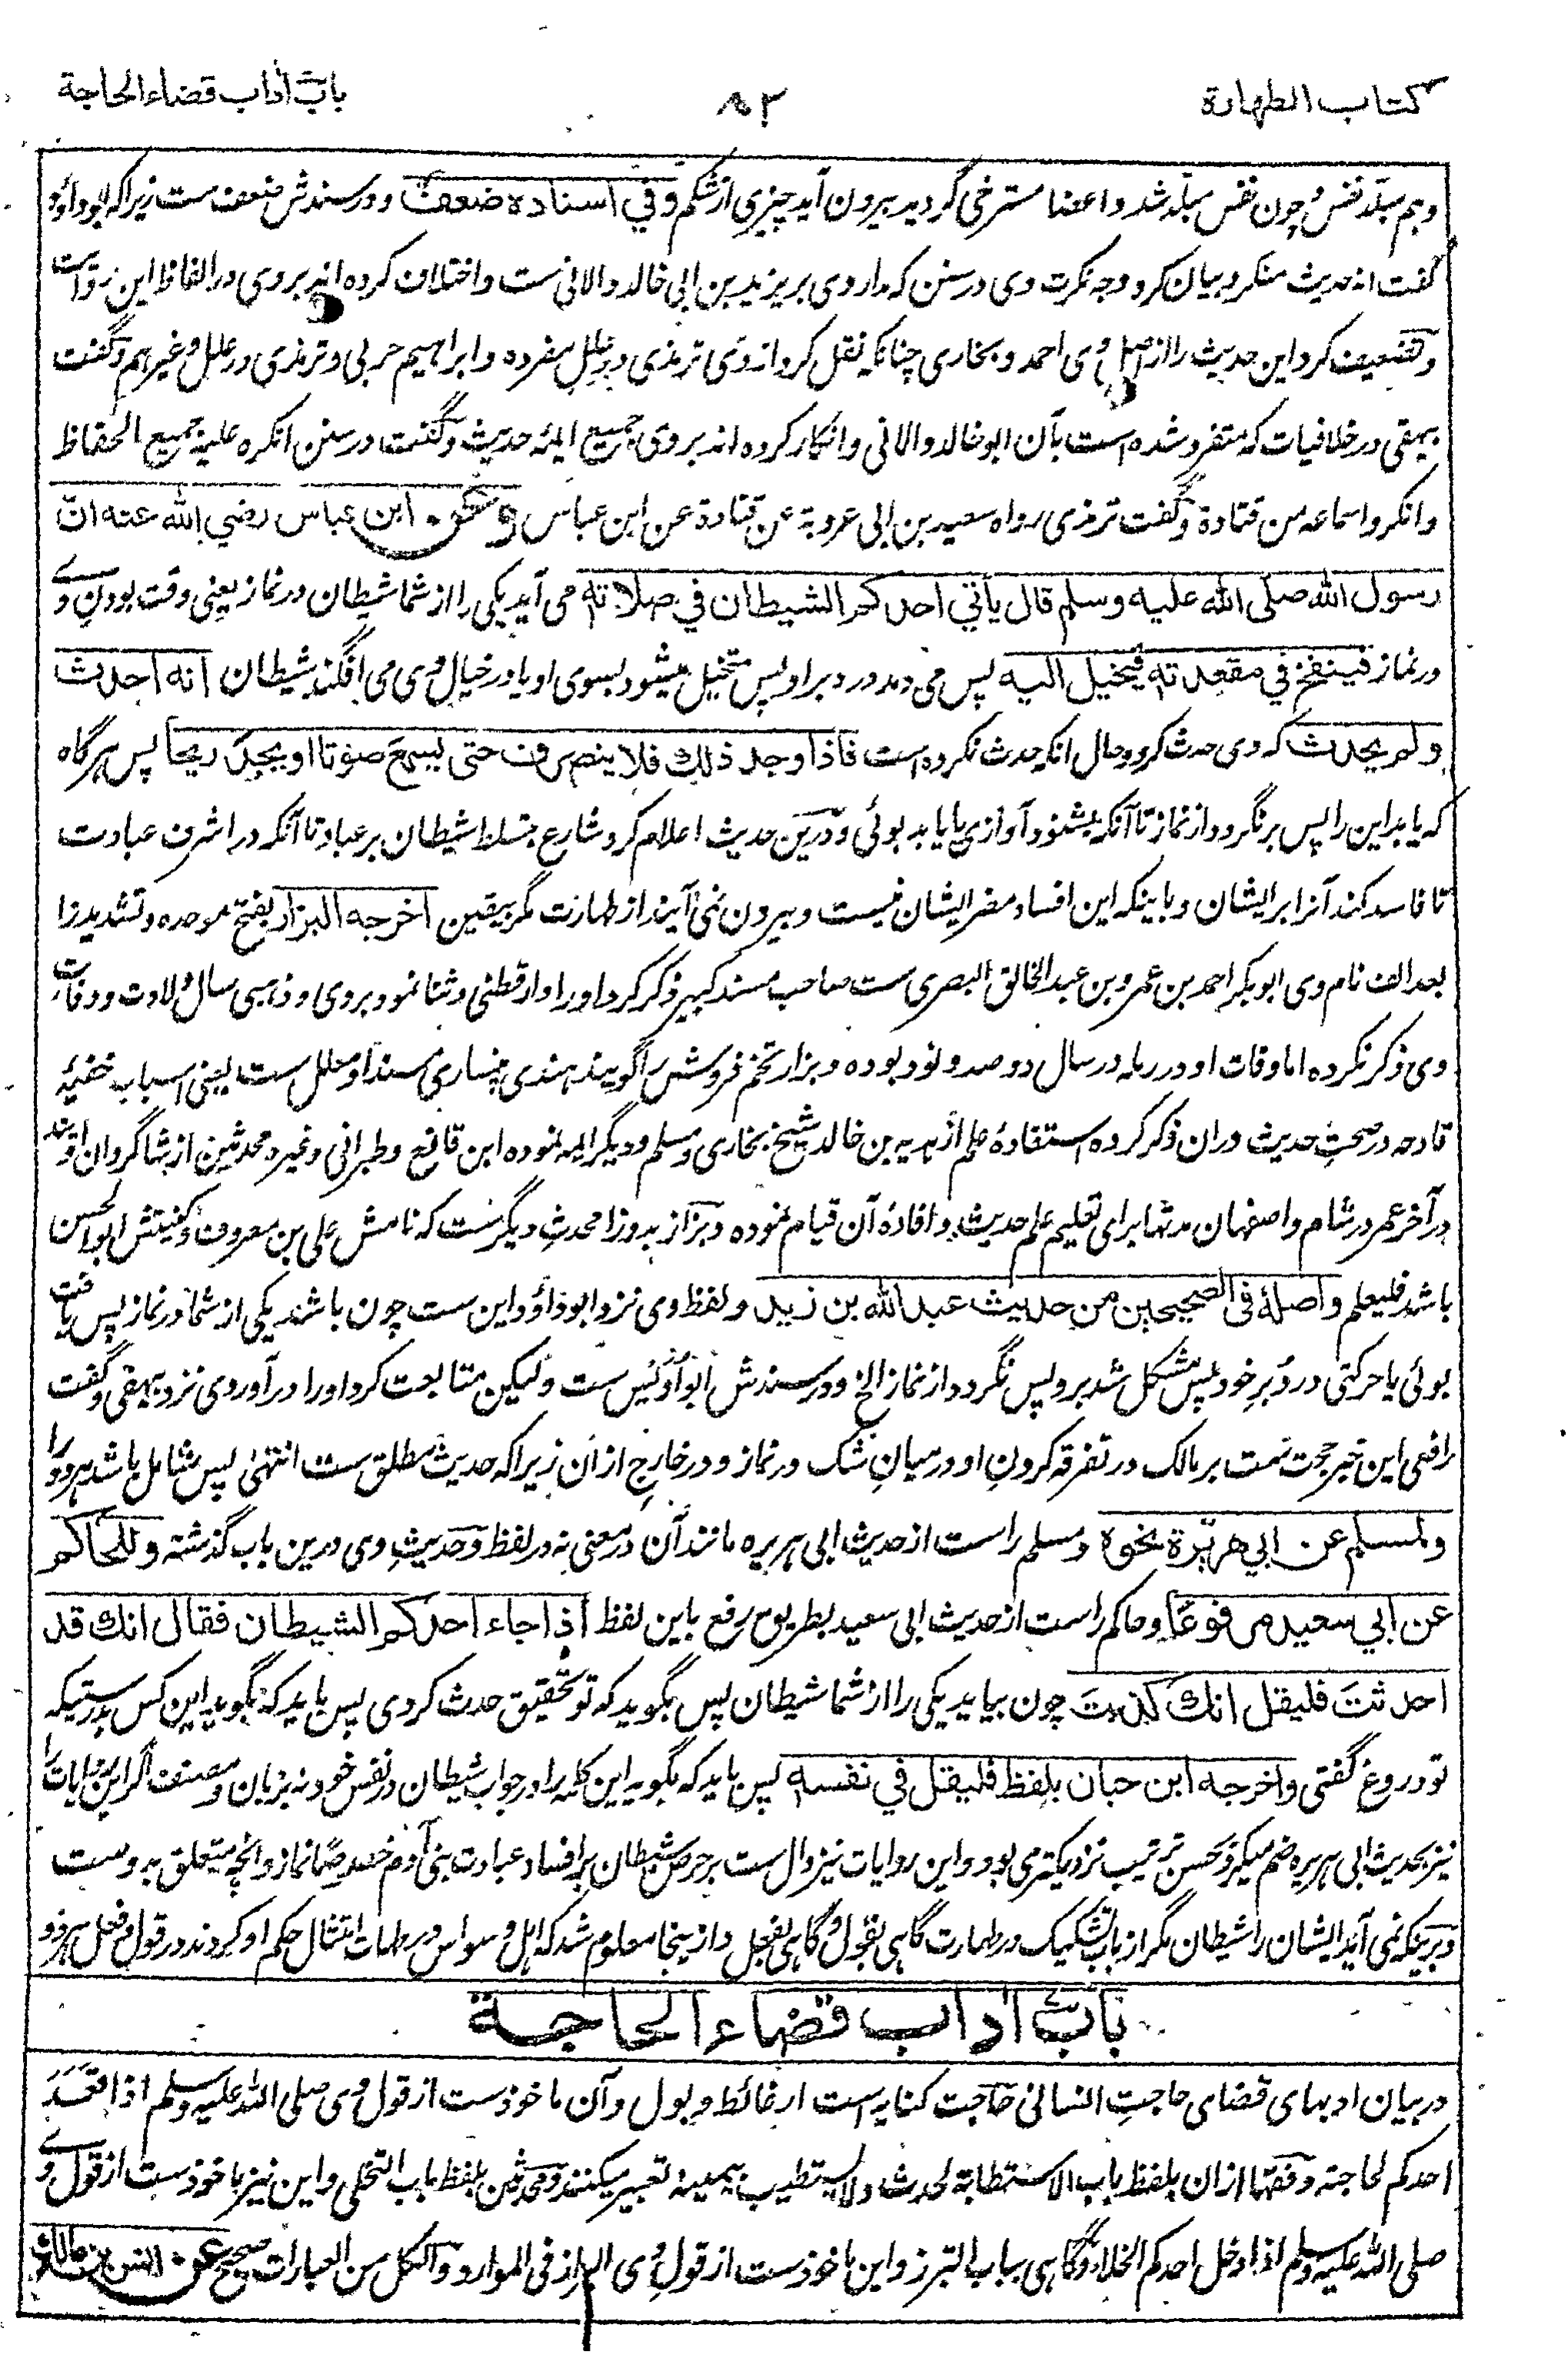 کتاب الطهارة
۸۲
باب آداب قضاء الحاجة
وہم مبلّد نفس و چون نفس مبلّد شد و اعضا مسترخی گردید بیرون آید چیزی از شکم وفي اسناده ضعف و در سندش ضعف ست زیراکه ابوداؤد
گفت انه حدیث منکر و بیان کرد وجه نکرت وی در سنن که مدار وی بر یزید بن ابی خالد والانی ست و اختلاف کرده اند بروی در الفاظ این روایت
و تضعیف کرد این حدیث را از اصل وی احمد و بخاری چنانکه نقل کرد از وی ترمذی در علل مفرده و ابراهیم حربی و ترمذی در علل و غیرهم و گفت
بیهقی در خلافیات که متفرد شده است بآن ابو خالد والانی و انکار کرده اند بروی جمیع ایمۂ حدیث و گفت در سنن انکره علیه جمیع الحفاظ
وانکروا سماعه من قتادة و گفت ترمذی رواه سعید بن ابی عروبة عن قتادة عن ابن عباس وعن ابن عباس رضي الله عنه انّ
رسول الله صلّى الله عليه وسلم قال يأتي احدكم الشيطان في صلاته می آید یکی را از شما شیطان در نماز یعنی وقت بودن وے
در نماز فينفخ في مقعدته فيخيل اليه پس می دمد در دبر او پس متخیل میشود بسوی او یا در خیال وی می افگند شیطان انه احدث
ولم يحدث که وی حدث کرد و حال آنکه حدث نکرده است فاذا وجد ذلك فلا ينصرفن حتى يسمع صوتا او يجد ريحا پس هرگاه
که یابد این را پس برنگردد از نماز تا آنکه بشنود آوازی یا یابد بوئی و درین حدیث اعلام کرد شارع بتسلط شیطان بر عباد تا آنکه در اشرف عبادت
تا فاسد کند آنرا بر ایشان و باینکه این افساد مضر ایشان نیست و بیرون نمی آیند از طهارت مگر بیقین اخرجه البزار بفتح موحده و تشدید زا
بعد الف نام وی ابوبکر احمد بن عمرو بن عبد الخالق البصری ست صاحب مسند کبیر ذکر کرد او را دارقطنی و ثنا نمود بروی و ذهبی سال ولادت و وفات
وی ذکر نکرده اما وفات او در رمله در سال دو صد و نود بوده و بزار تخم فروش را گویند بهندی پنساری مسند او معلل ست یعنی اسباب خفیۂ
قادحه در صحت حدیث دران ذکر کرده استفادۂ علم از هدبه بن خالد شیخ بخاری و مسلم و دیگر ایمه نموده ابن قانع و طبرانی و غیره محدثین از شاگردان اویند
در آخر عمر در شام و اصفهان مدتها برای تعلیم علم حدیث و افادۂ آن قیام نموده و بزاز بدو زا محدث دیگرست که نامش علی بن معروف و کنیتش ابو الحسن
باشد فلیعلم واصله في الصحيحين من حديث عبد الله بن زيد و لفظ وی نزد ابو داؤد این ست چون باشد یکی از شما در نماز پس یافت
بوئی یا حرکتی در دُبرِ خود پس مشکل شد برو پس نگردد از نماز الخ و در سندش ابو اویس ست ولیکن متابعت کرد او را دراوردی نزد بیهقی و گفت
رافعی این خبر حجت ست بر مالک در تفرقه کردنِ او درمیانِ شک در نماز و در خارج از ان زیراکه حدیث مطلق ست انتهى پس شامل باشد هردو را
ولمسلم عن ابي هريرة نحوه و مسلم راست از حدیث ابی هریره مانند آن در معنی نه در لفظ و حدیثِ وی درین باب گذشته وللحاكم
عن ابي سعيد مرفوعًا و حاکم راست از حدیث ابی سعید بطریق رفع باین لفظ اذا جاء احدكم الشيطان فقال انك قد
احدثتَ فليقل انك كذبت چون بیاید یکی را از شما شیطان پس بگوید که تو بتحقیق حدث کردی پس باید که بگوید این کس بدرستیکه
تو دروغ گفتی واخرجه ابن حبان بلفظ فليقل في نفسه پس باید که بگوید این کلمه را در جواب شیطان در نفس خود نه بزبان و مصنف اگر این روایات را
نیز بحدیث ابی هریره ضم میکرد بحسن ترتیب نزدیکتر می بود و این روایات نیز دال ست بر حرص شیطان بر افساد عبادت بنی آدم خصوصًا نماز و انچه متعلق بدوست
و بر ینکه نمی آید ایشان را شیطان مگر از باب تشکیک در طهارت گاهی بقول و گاهی بفعل و از ینجا معلوم شد که اهل وسواس در طهارات امتثال حکم او کردند در قول و فعل هردو
باب آداب قضاء الحاجة
در بیان ادبهای قضای حاجتِ انسانی حاجت کنایه است از غائط و بول و آن ماخوذست از قول وی صلی الله علیه وسلم اذا قعد
احدکم لحاجته و فقها ازان بلفظ باب الاستطابة لحدث ولا یستطیب بیمینه تعبیر میکنند و محدثین بلفظ باب التخلی و این نیز ماخوذست از قول وے
صلی الله علیه وسلم اذا دخل احدکم الخلاء و گاهی بباب التبرز و این ماخوذست از قولِ وی البراز فی الموارد و الکل من العبارات صحیح عن انس بن مالك